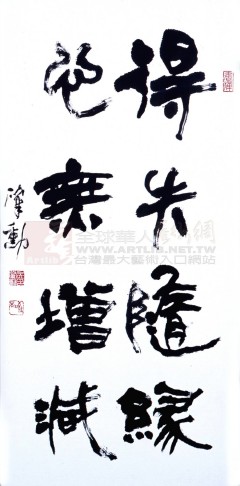 得失隨緣
心無增減
肇勳
全球華人藝術網
WWW.ARTLIB.NET.TW
台灣最大藝術入口網站